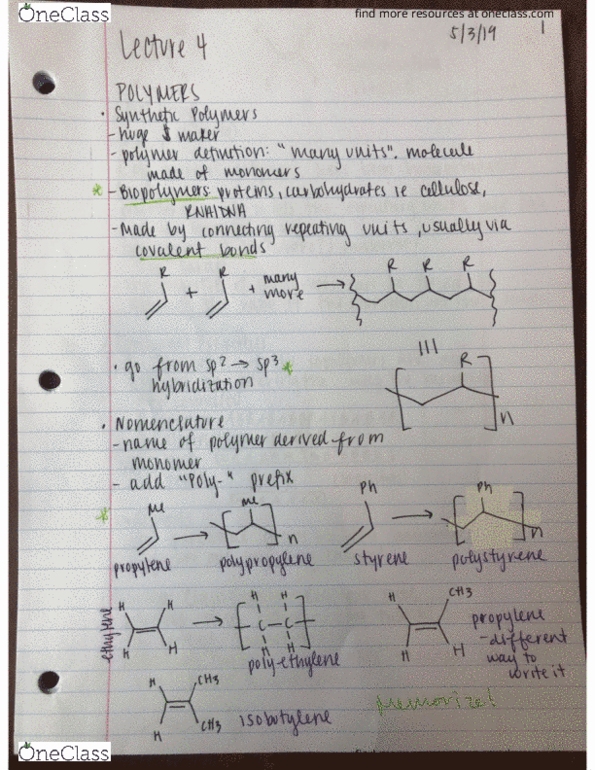 OneClass
find more resources at oneclass.com
Lecture 4
5/3/19
1
POLYMERS
· Synthetic Polymers
- huge $ maker
- polymer definition: "many units". molecule
made of monomers
* - Biopolymers: proteins, carbohydrates ie cellulose,
RNA/DNA
- Made by connecting repeating units, usually via
covalent bonds
R R R R R
+ + many
more
· go from sp2 → sp3 *
hybridization
III
R
n
· Nomenclature
- name of polymer derived from
monomer
- add "Poly-" prefix
*
Me Me Ph Ph
n n
propylene polypropylene styrene polystyrene
ethylene
H H
H H
H H
C - C
H H
poly-ethylene
H CH3
H H
propylene
- different
way to
write it
H CH3
H CH3
isobutylene
memorize!
OneClass